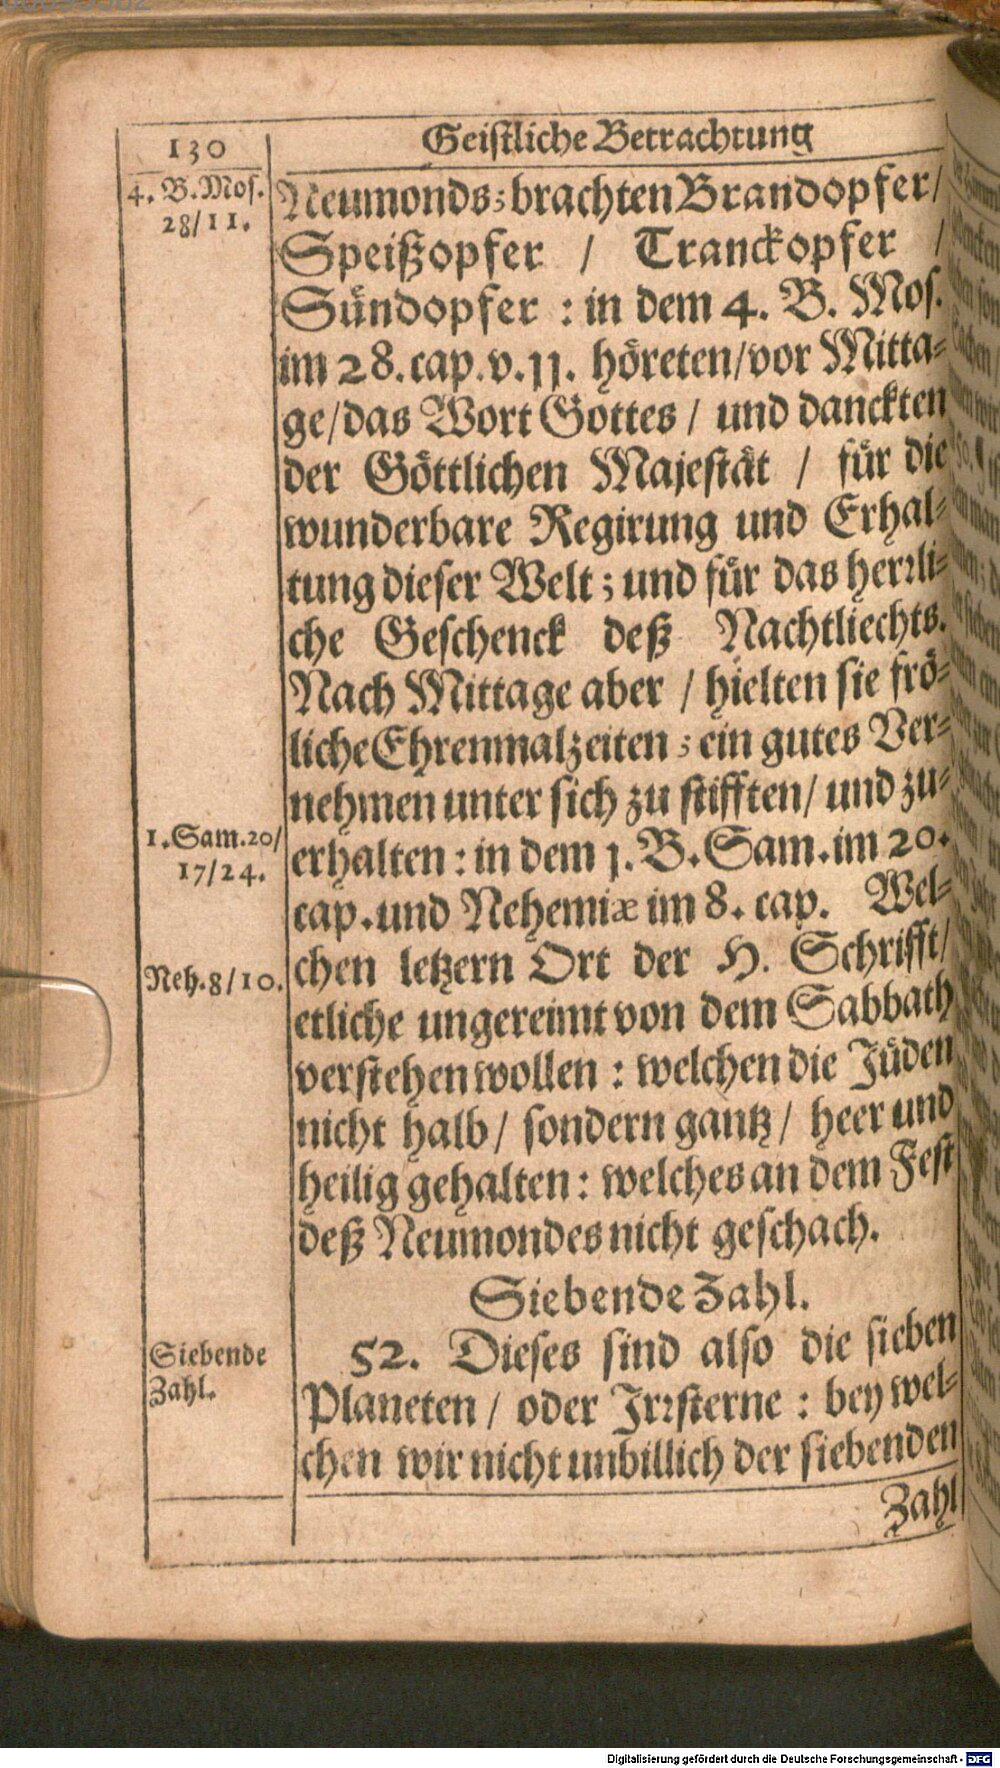 130
Geistliche Betrachtung
4. B. Mos.
28/11.
Neumonds; brachten Brandopfer/
Speißopfer / Tranckopfer /
Sündopfer : in dem 4. B. Mos.
im 28. cap. v. 11. höreten/vor Mitta-
ge/das Wort Gottes / und danckten
der Göttlichen Majestät / für die
wunderbare Regirung und Erhal-
tung dieser Welt ; und für das herrli-
che Geschenck deß Nachtliechts.
Nach Mittage aber / hielten sie frö-
liche Ehrenmalzeiten ; ein gutes Ver-
nehmen unter sich zu stifften/ und zu-
1. Sam. 20/
17/24.
erhalten : in dem 1. B. Sam. im 20.
cap. und Nehemiæ im 8. cap. Wel-
Neh. 8/10.
chen letzern Ort der H. Schrifft/
etliche ungereimt von dem Sabbath
verstehen wollen : welchen die Jüden
nicht halb/ sondern gantz/ heer und
heilig gehalten : welches an dem Fest
deß Neumondes nicht geschach.
Siebende Zahl.
Siebende
Zahl.
52. Dieses sind also die sieben
Planeten / oder Irrsterne : bey wel-
chen wir nicht unbillich der siebenden
Zahl
Digitalisierung gefördert durch die Deutsche Forschungsgemeinschaft - DFG